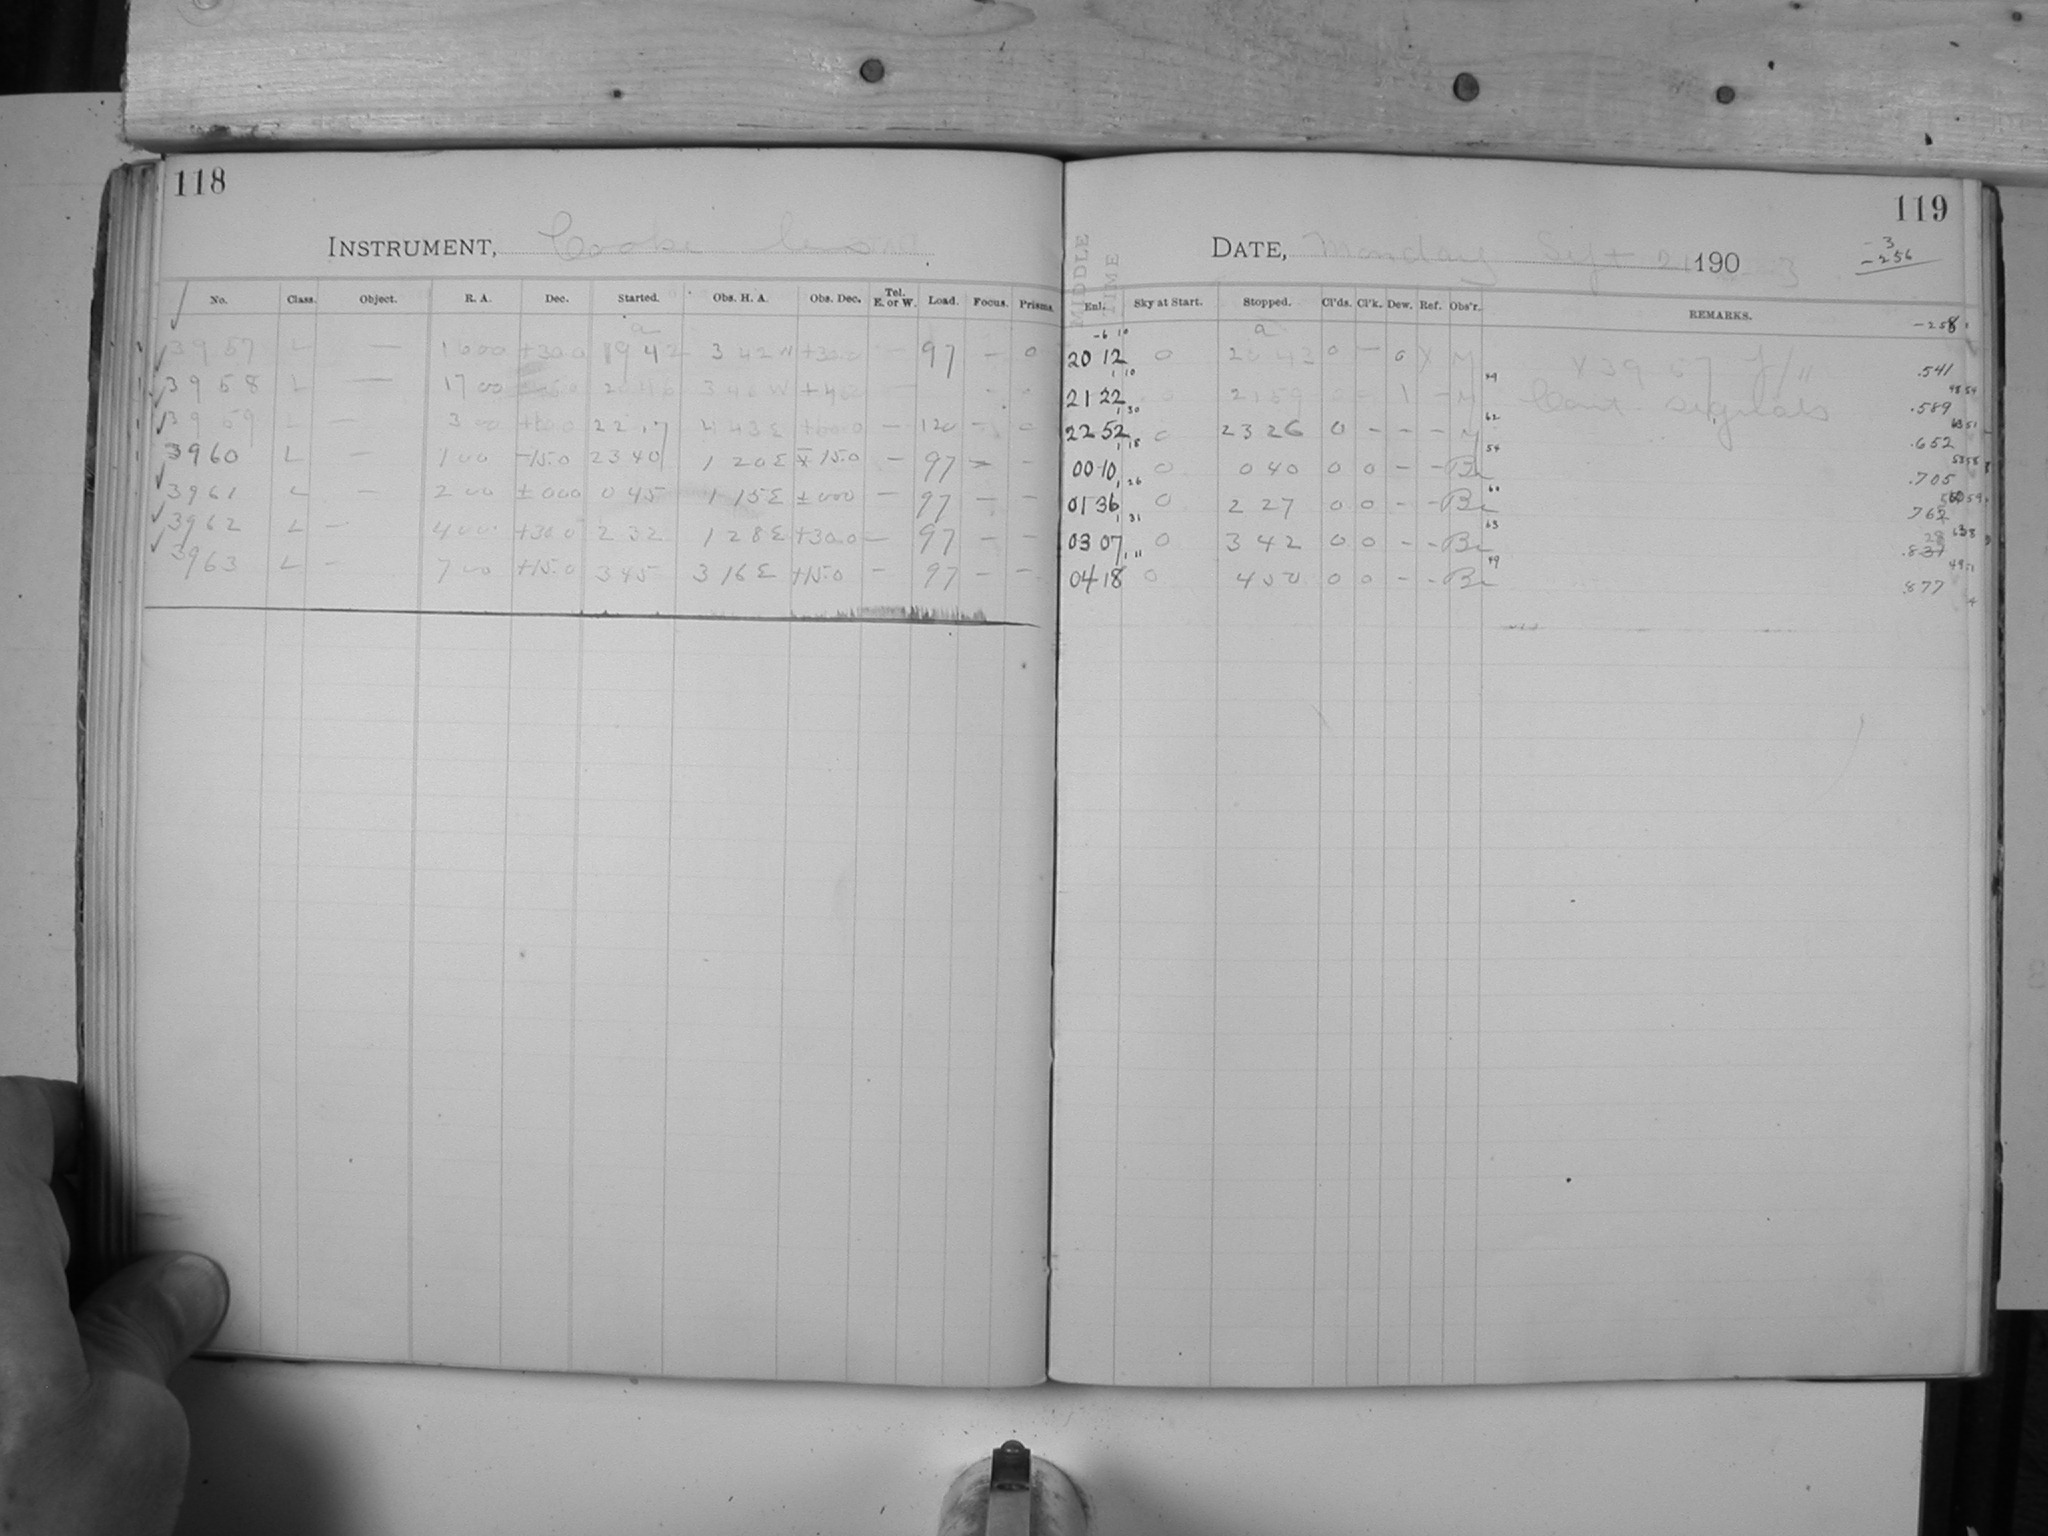 118
INSTRUMENT, Cooke lens
No. Class. Object. R. A. Dec. Started. Obs. H. A. Obs. Dec. Tel. E. or W. Load. Focus. Prisms.
a
3957 L — 1600 +30.0 1942 3 42 W +30.0 — 97 — 0
3958 L — 17 00 3 46 W
3959 L — 3 00 22 17 4 43 E — 120 —
3960 L — 1 00 -15.0 23 40 1 20 E 15.0 — 97 — —
3961 L — 2 00 ±000 0 45 1 15 E ±000 — 97 — —
3962 L — 4 00 +30.0 2 32 1 28 E +30.0 — 97 — —
3963 L — 7 00 +15.0 3 45 3 16 E +15.0 — 97 — —
119
DATE, Monday Sept 21 1903
-3
-256
MIDDLE TIME
Enl. Sky at Start. Stopped. Cl'ds. Cl'k. Dew. Ref. Obs'r. REMARKS.
-6 10 a
20 12 0 20 42 0 — 0 X M X 3957 f/" .541
1 10
21 22 21 59 1 — M Cont. signals .589
1 30
22 52 0 23 26 0 - - - M .652
1 18
00 10 0 0 40 0 0 - - Br .705
1 26
01 36 0 2 27 0 0 - - Br
1 31
03 07 0 3 42 0 0 - - Br .831
1 11
04 18 0 4 50 0 0 - - Br .877